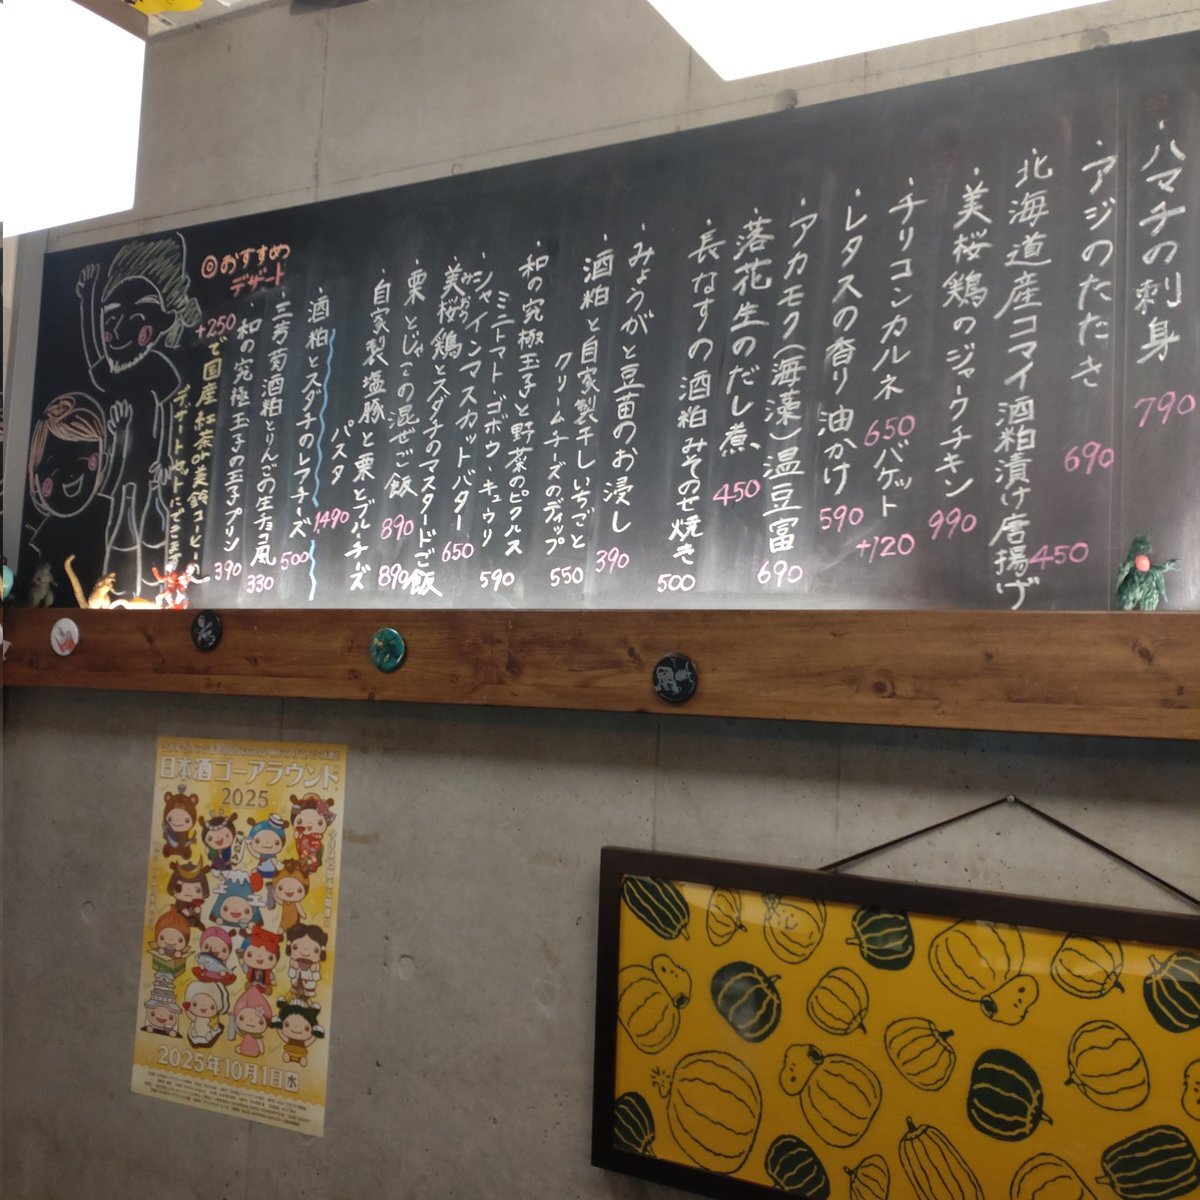 ・ハマチの刺身 790
・アジのたたき 690
北海道産コマイ酒粕漬け唐揚げ 450
・美桜鶏のジャークチキン 990
・チリコンカルネ 650 バケット +120
・レタスの香り油かけ 590
・アカモク(海藻)温豆富 690
・落花生のだし煮 450
・長なすの酒粕みそのせ焼き 500
・みょうがと豆苗のお浸し 390
・酒粕と自家製干しいちごと
クリームチーズのディップ 550
・和の究極玉子と野菜のピクルス
ミニトマト・ゴボウ・キュウリ 590
・シャインマスカットバター 650
美桜鶏とスダチのマスタードご飯 890
みおどり
・栗とじゃこの混ぜご飯 890
・自家製塩豚と栗とブルーチーズ
パスタ 1490
◎おすすめ
デザート
・酒粕とスダチのレアチーズ 500
・三芳菊酒粕とりんごの生チョコ風 330
・和の究極玉子の玉子プリン 390
+250で国産紅茶or美鈴コーヒー
デザートセットにできます
日本酒ゴーアラウンド
2025
2025年10月1日水